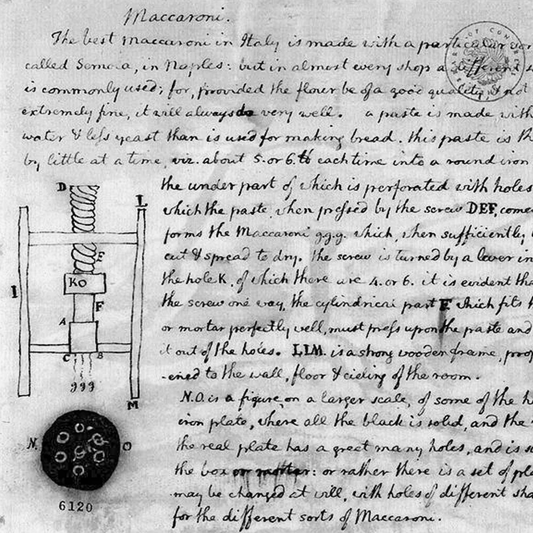 Maccaroni.
The best maccaroni in Italy is made with a particular
called Semola, in Naples: but in almost every shop a different
is commonly used; for, provided the flour be of a good quality, & not
extremely fine, it will always do very well. a paste is made with
water & less yeast than is used for making bread. this paste is th
by little at a time, viz. about 5. or 6. ℔ each time into a round iron
the under part of which is perforated with holes
which the paste, when pressed by the screw DEF, come
forms the Maccaroni g.g.g. which, when sufficiently
cut & spread to dry. the screw is turned by a lever in
the hole K. of which there are 4. or 6. it is evident tha
the screw one way, the cylindrical part F. which fits t
or mortar perfectly well, must press upon the paste and
it out of the holes. LIM. is a strong wooden frame, prop
-ened to the wall, floor & cieling of the room.
N.O. is a figure, on a larger scale, of some of the h
iron plate, where all the black is solid, and the
the real plate has a great many holes, and is s
the box or mortar: or rather there is a set of pla
may be changed at will, with holes of different sha
for the different sorts of Maccaroni.
D
L
E
KO
I
F
A
C
B
ggg
M
N.
O
6120